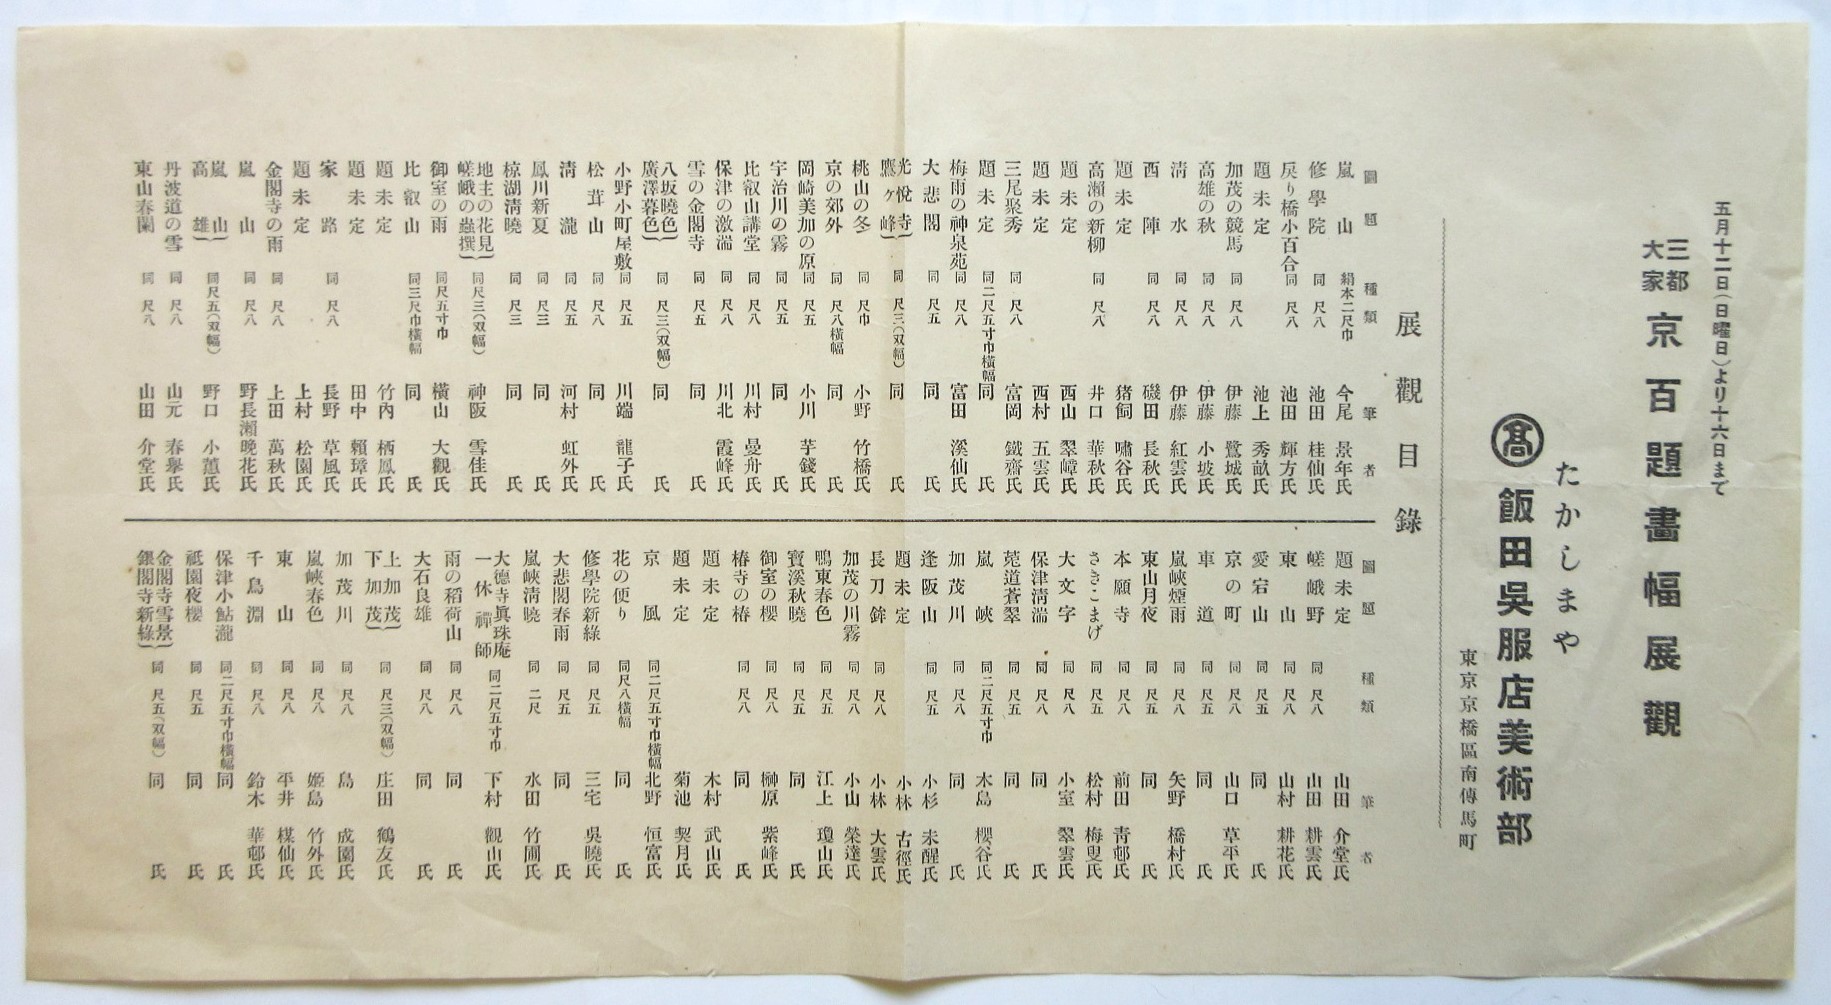 五月十二日(日曜日)より十六日まで
三都大家 京百題畫幅展觀
たかしまや
髙 飯田吳服店美術部
東京京橋區南傳馬町
展觀目錄
圖題 種類 筆者
嵐山 絹本二尺巾 今尾景年氏
修學院 同尺八 池田桂仙氏
戻り橋小百合 同尺八 池田輝方氏
題未定 池上秀畝氏
加茂の競馬 同尺八 伊藤鷺城氏
高雄の秋 同尺八 伊藤小坡氏
淸水 同尺八 伊藤紅雲氏
西陣 同尺八 磯田長秋氏
題未定 猪飼嘯谷氏
高瀨の新柳 同尺八 井口華秋氏
題未定 西山翠嶂氏
題未定 西村五雲氏
三尾聚秀 同尺八 富岡鐵齋氏
題未定 同二尺五寸巾橫幅 同氏
梅雨の神泉苑 同尺八 富田溪仙氏
大悲閣 同尺五 同氏
光悅寺 鷹ヶ峰} 同尺三(双幅) 同氏
桃山の冬 同尺巾 小野竹橋氏
京の郊外 同尺八橫幅 同氏
岡崎美加の原 同尺五 小川芋錢氏
宇治川の霧 同尺五 同氏
比叡山講堂 同尺八 川村曼舟氏
保津の激湍 同尺八 川北霞峰氏
雪の金閣寺 同尺五 同氏
八坂曉色 廣澤暮色} 同尺三(双幅) 同氏
小野小町屋敷 同尺五 川端龍子氏
松茸山 同尺八 同氏
淸瀧 同尺五 河村虹外氏
鳳川新夏 同尺三 同氏
椋湖淸曉 同尺三 同氏
地主の花見 嵯峨の蟲撰} 同尺三(双幅) 神阪雪佳氏
御室の雨 同尺五寸巾 橫山大觀氏
比叡山 同三尺巾橫幅 同氏
題未定 竹內栖鳳氏
題未定 田中賴璋氏
家路 同尺八 長野草風氏
題未定 上村松園氏
金閣寺の雨 同尺八 上田萬秋氏
嵐山 同尺八 野長瀨晩花氏
嵐山 高雄} 同尺五(双幅) 野口小蕙氏
丹波道の雪 同尺八 山元春擧氏
東山春闌 同尺八 山田介堂氏
圖題 種類 筆者
題未定 山田介堂氏
嵯峨野 同尺八 山田耕雲氏
東山 同尺八 山村耕花氏
愛宕山 同尺五 同氏
京の町 同尺八 山口草平氏
車道 同尺五 同氏
嵐峽煙雨 同尺八 矢野橋村氏
東山月夜 同尺八 同氏
本願寺 同尺八 前田靑邨氏
さきこまげ 同尺五 松村梅叟氏
大文字 同尺八 小室翠雲氏
保津淸湍 同尺八 同氏
菀道蒼翠 同尺五 同氏
嵐峽 同二尺五寸巾 木島櫻谷氏
加茂川 同尺八 同氏
逢阪山 同尺五 小杉未醒氏
題未定 小林古徑氏
長刀鉾 同尺八 小林大雲氏
加茂の川霧 同尺八 小山榮達氏
鴨東春色 同尺五 江上瓊山氏
寶溪秋曉 同尺五 同氏
御室の櫻 同尺八 榊原紫峰氏
椿寺の椿 同尺八 同氏
題未定 木村武山氏
題未定 菊池契月氏
京風 同二尺五寸巾橫幅 北野恒富氏
花の便り 同尺八橫幅 同氏
修學院新綠 同尺五 三宅吳曉氏
大悲閣春雨 同尺五 同氏
嵐峽淸曉 同二尺 水田竹圃氏
大德寺眞珠庵 一休禪師 同二尺五寸巾 下村觀山氏
雨の稻荷山 同尺八 同氏
大石良雄 同尺八 同氏
上加茂 下加茂} 同尺三(双幅) 庄田鶴友氏
加茂川 同尺八 島成園氏
嵐峽春色 同尺八 姬島竹外氏
東山 同尺八 平井楳仙氏
千鳥淵 同尺八 鈴木華邨氏
保津小鮎瀧 同二尺五寸巾橫幅 同氏
祗園夜櫻 同尺五 同氏
金閣寺雪景 銀閣寺新綠} 同尺五(双幅) 同氏